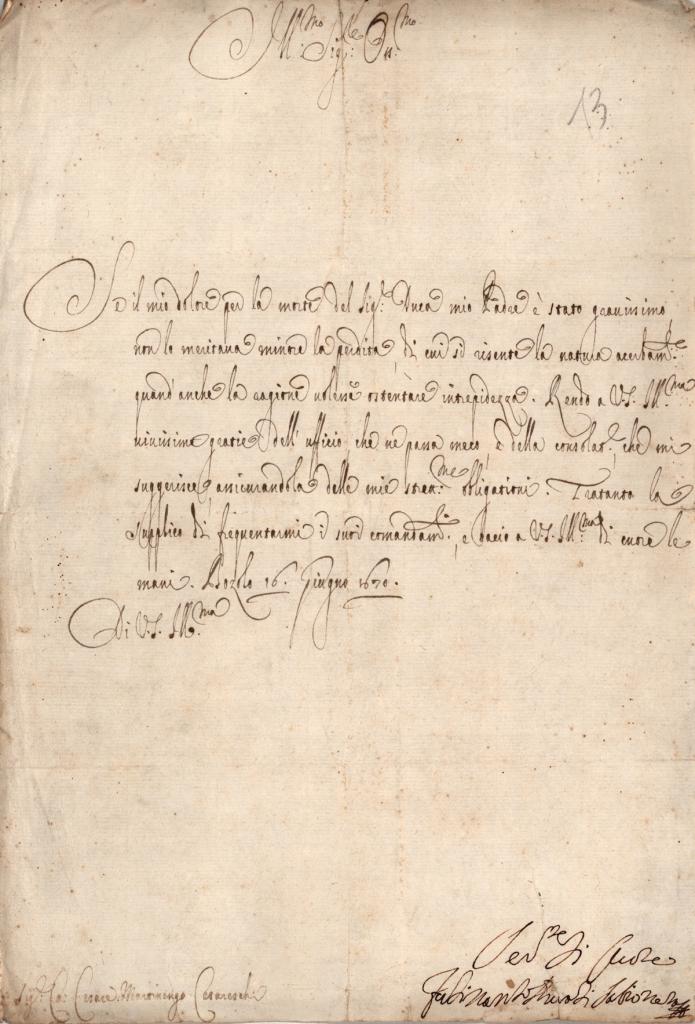 Ill:mo Sig:re Oss:mo
13
Se il mio dolore per la morte del Sig:r Duca mio Padre è stato grauissimo
non lo meritaua minore la perdita, di cui si risente la natura acerbam.te
quand'anche la ragione uolesse ostentare intrepidezza. Rendo a V.S. Ill:ma
uiuissime gratie dell'ufficio, che ne passa meco, e della consolat.e, che mi
suggerisce, assicurandola delle mie obligationi. Tratanto la
supplico di frequentarmi i suoi comandam.ti, e bacio a V.S. Ill:ma di cuore le
mani. Bozolo 16. Giugno 1670.
Di V.S. Ill:ma
Ser.re di Cuore
di Sabioneta
Sig:r Co: Cesare Martinengo Cesareschi